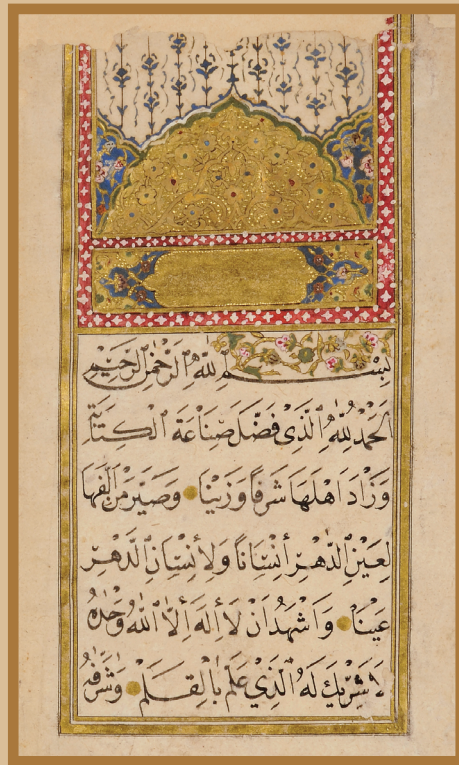 بِسْمِ اللَّهِ الرَّحْمٰنِ الرَّحِيمِ
الْحَمْدُ لِلَّهِ الَّذِي فَضَّلَ صِنَاعَةَ الْكِتَابَةِ
وَزَادَ اَهْلَهَا شَرَفًا وَزَيْنًا وَصَيَّرَ مَنْ اَلِفَهَا
لِعَيْنِ الدَّهْرِ أنْسَانًا وَلِأنْسَانِ الدَّهْرِ
عَيْنًا وَاَشْهَدُ اَنْ لَا أِلَهَ أِلَّا اللَّهُ وَحْدَهُ
لَا شَرِيكَ لَهُ الَّذِي عَلَّمَ بِالْقَلَمِ وَشَرَّفَهُ